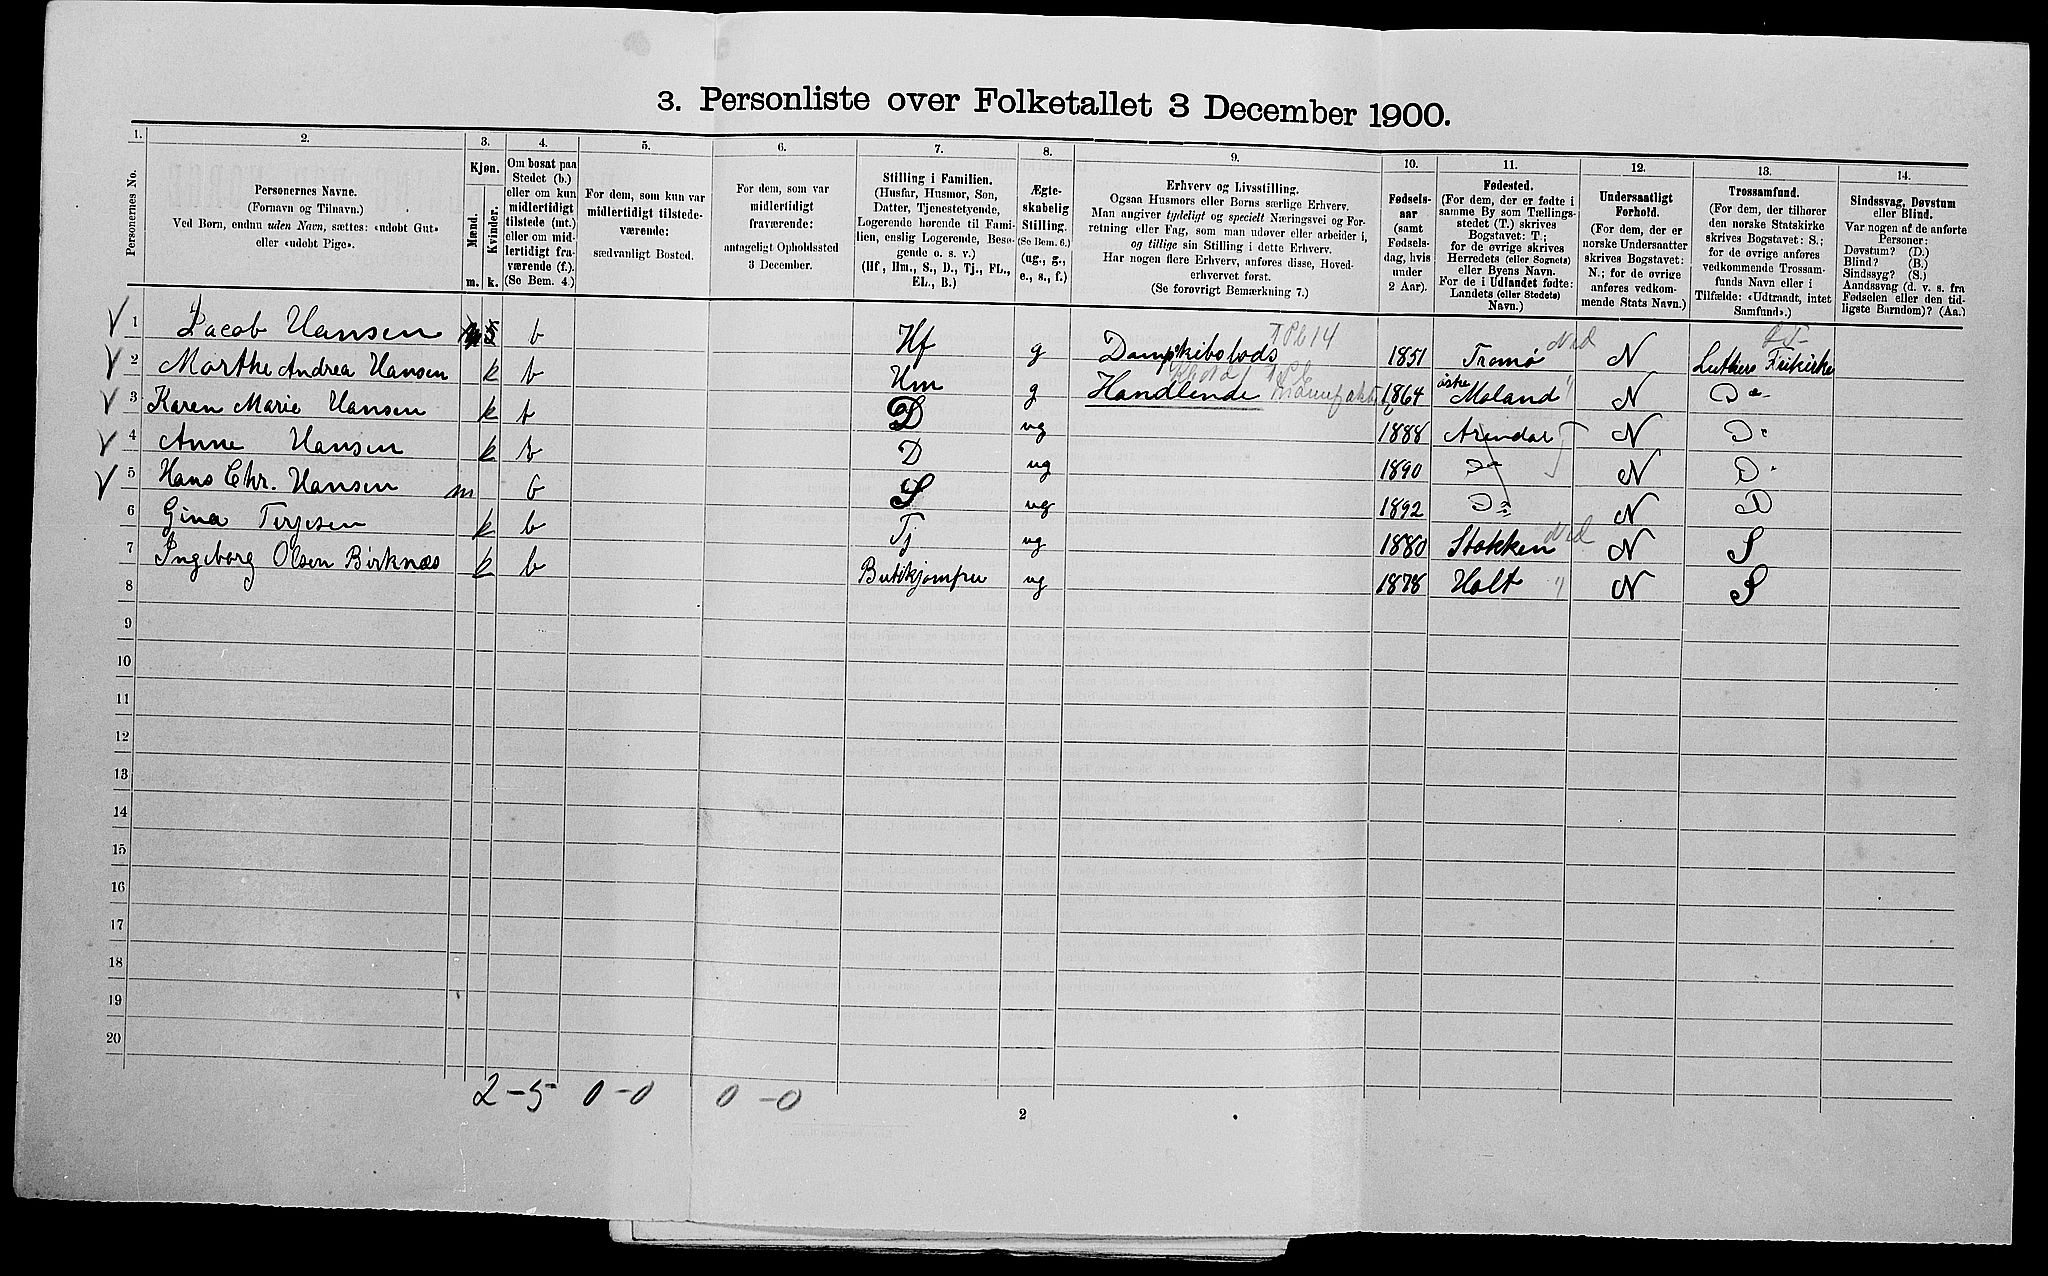 3. Personliste over Folketallet 3 December 1900.
1. 2. 3. 4. 5. 6. 7. 8. 9. 10. 11. 12. 13. 14.
Personernes No.
Personernes Navne.
(Fornavn og Tilnavn.)
Ved Børn, endnu uden Navn, sættes: «udøbt Gut»
eller «udøbt Pige».
Kjøn.
Mænd. Kvinder.
m. k.
Om bosat paa
Stedet (b.)
eller om kun
midlertidigt
tilstede (mt.)
eller om mid-
lertidigt fra-
værende (f.).
(Se Bem. 4.)
For dem, som kun var
midlertidigt tilstede-
værende:
sædvanligt Bosted.
For dem, som var
midlertidigt
fraværende:
antageligt Opholdssted
3 December.
Stilling i Familien.
(Husfar, Husmor, Søn,
Datter, Tjenestetyende,
Logerende hørende til Fami-
lien, enslig Logerende, Besø-
gende o. s. v.)
(Hf, Hm., S., D., Tj., FL.,
EL., B.)
Ægte-
skabelig
Stilling.
(Se Bem. 6.)
(ug., g.,
e., s., f.)
Erhverv og Livsstilling.
Ogsaa Husmors eller Børns særlige Erhverv.
Man angiver tydeligt og specielt Næringsvei og For-
retning eller Fag, som man udøver eller arbeider i,
og tillige sin Stilling i dette Erhverv.
Har nogen flere Erhverv, anføres disse, Hoved-
erhvervet først.
(Se forøvrigt Bemærkning 7.)
Fødsels-
aar
(samt
Fødsels-
dag, hvis
under
2 Aar).
Fødested.
(For dem, der er fødte i
samme By som Tællings-
stedet (T.) skrives
Bogstavet: T.;
for de øvrige skrives
Herredets (eller Sognets)
eller Byens Navn.
For de i Udlandet fødte:
Landets (eller Stedets)
Navn.)
Undersaatligt
Forhold.
(For dem, der er
norske Undersaatter
skrives Bogstavet:
N.; for de øvrige
anføres vedkom-
mende Stats Navn.)
Trossamfund.
(For dem, der tilhører
den norske Statskirke
skrives Bogstavet: S.;
for de øvrige anføres
vedkommende Trossam-
funds Navn eller i
Tilfælde: «Udtraadt, intet
Samfund».)
Sindssvag, Døvstum
eller Blind.
Var nogen af de anførte
Personer:
Døvstum? (D.)
Blind? (B.)
Sindssyg? (S.)
Aandssvag (d. v. s. fra
Fødselen eller den tid-
ligste Barndom)? (Aa.)
1 Jacob Hansen b Hf g Dampskibslods 1851 Tromø N Luthers Frikirke
2 Marthe Andrea Hansen k b Hm g Handlende 1864 østre Moland N Do
3 Karen Marie Hansen k b D ug 1888 Arendal N Do
4 Anne Hansen k b D ug 1890 Do N Do
5 Hans Chr. Hansen m b S ug 1892 Do N D
6 Gina Terjesen k b Tj ug 1880 Stokken N S
7 Ingeborg Olsen Birknæs k b Butikjomfru ug 1878 Holt N S
8
9
10
11
12
13
14
15
16
17
18
19
20
2-5 0-0 0-0
2